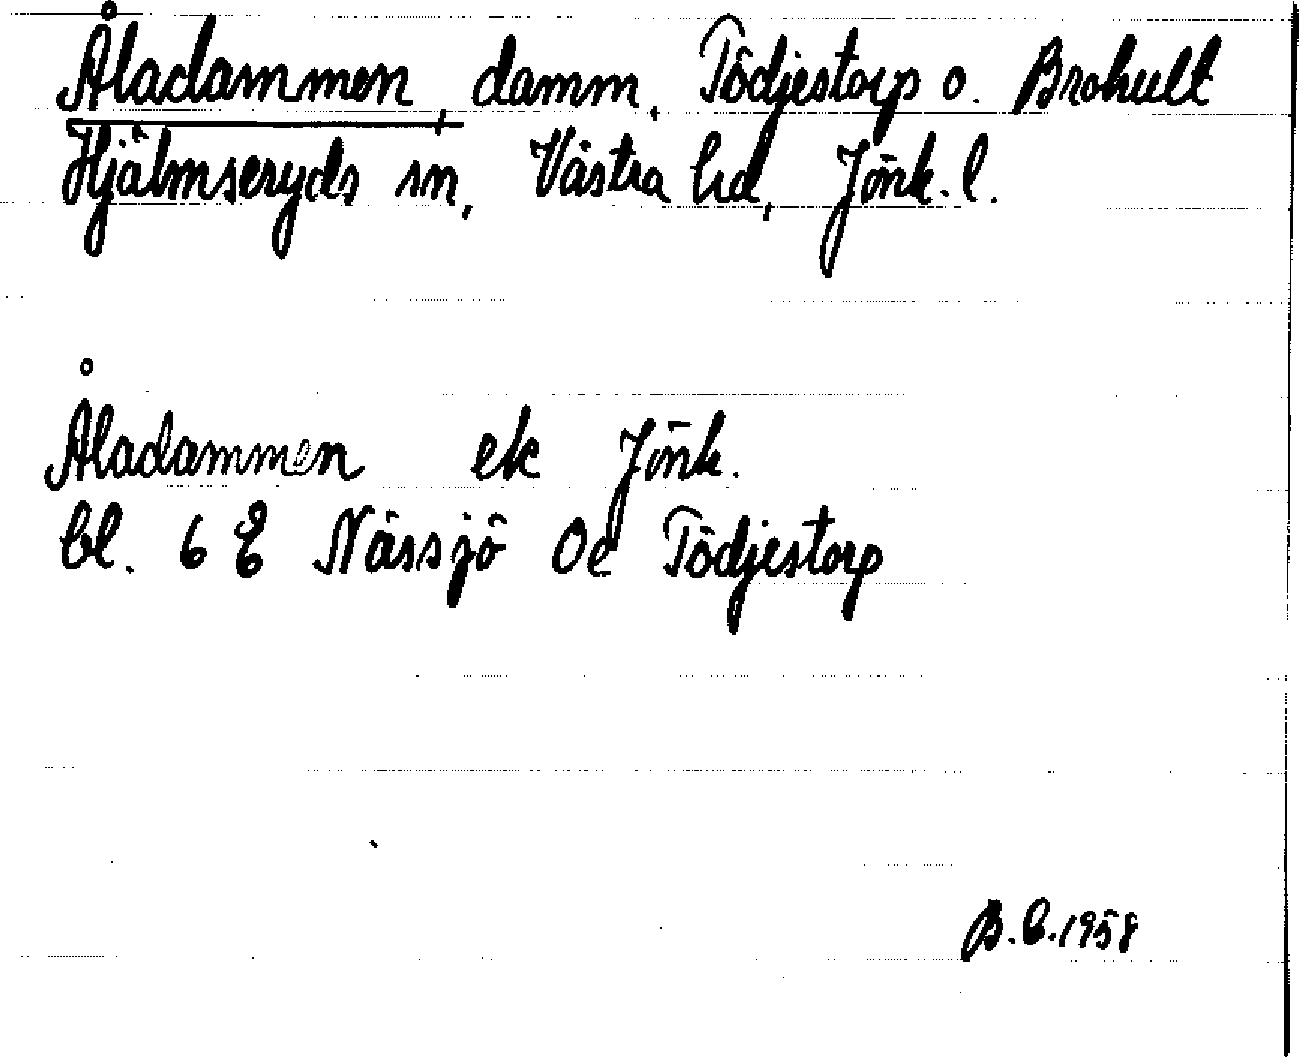 Åladammen, damm, Tödjestorp o. Brohult
Hjälmseryds sn, Västra hd, Jönk. l.
Åladammen ek Jönk.
bl. 6 E Nässjö 0e Tödjestorp
B.E. 1958